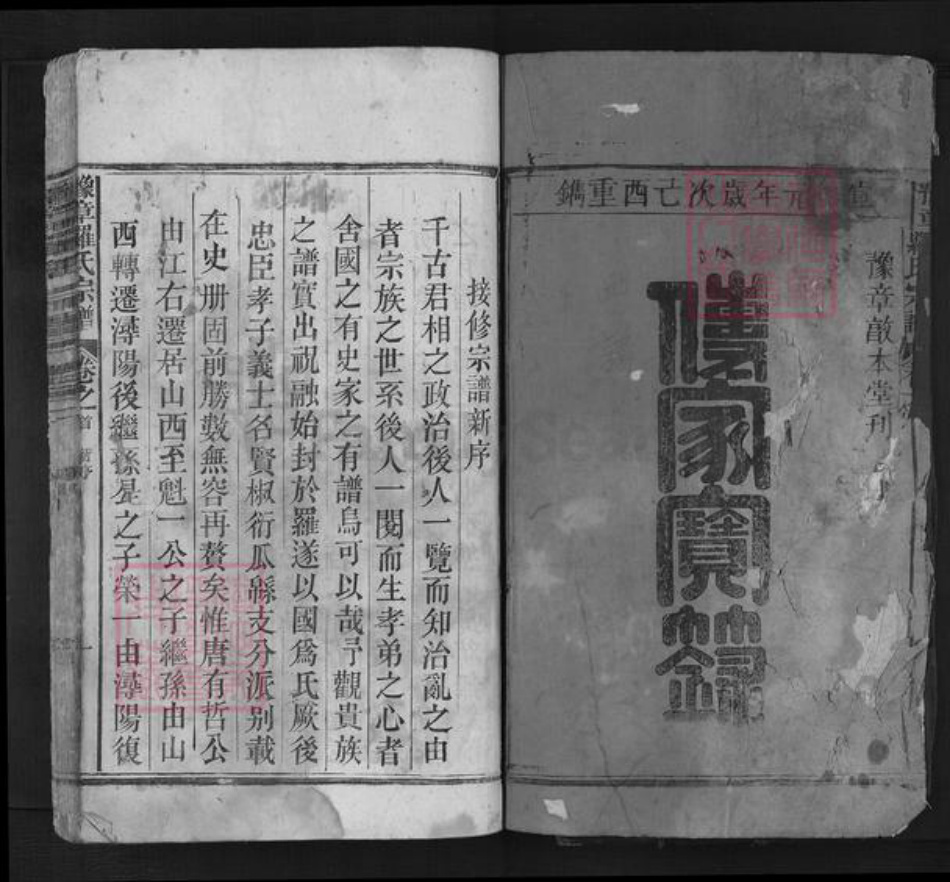 元年歲次己酉重鐫
豫章敵本堂刊
傳家寶籙
接修宗譜新序
千古君相之政治後人一覽而知治亂之由
者宗族之世系後人一閱而生孝弟之心者
舍國之有史家之有譜烏可以哉予觀貴族
之譜實出祝融始封於羅遂以國為氏厥後
忠臣孝子義士名賢椒衍瓜緜支分派别載
在史册固前勝數無容再贅矣惟唐有哲公
由江右遷居山西至魁一公之子繼孫由山
西轉遷潯陽後繼孫是之子榮一由潯陽復
豫章羅氏宗譜
卷之首
新序
一